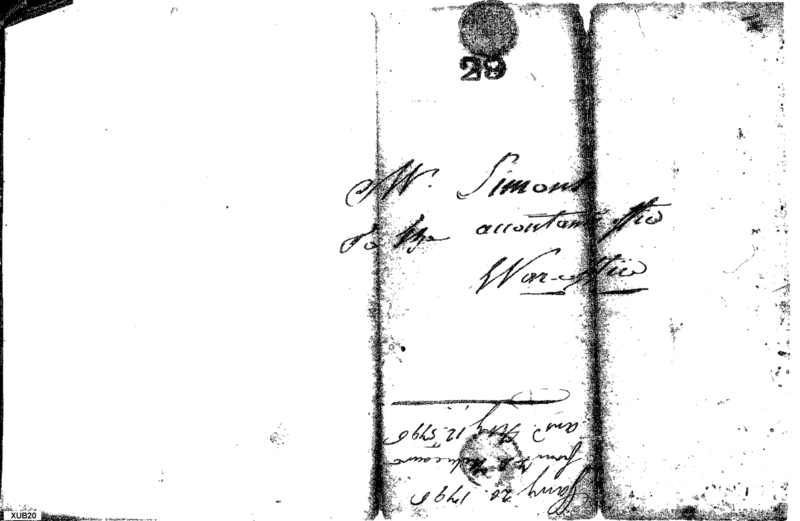 29
Mr. Simons
To the accountants office
War office
Jany 20 1796
from
and Feby 12 5796
XUB20